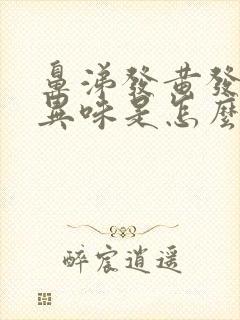 鼻涕發黃發
異味是怎麼
醉宸逍遥